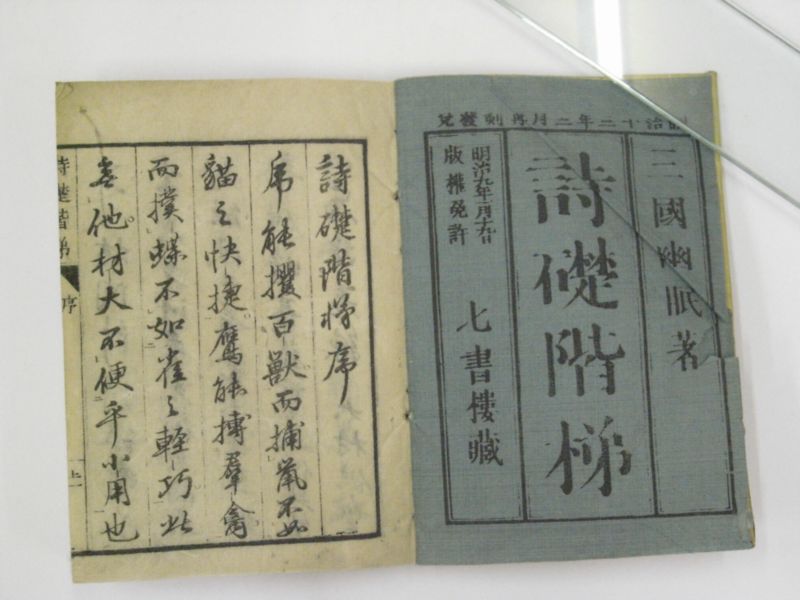 明治十二年二月再刻發兌
三國幽眠著
詩礎階梯
明治九年二月十九日
版權免許
七書樓藏
詩礎階梯序
虎能攫百獸而捕鼠不如
貓之快捷鷹能搏羣禽
而撲蝶不如雀之輕巧此
無他材大不便乎小用也
詩礎階梯 序 上一